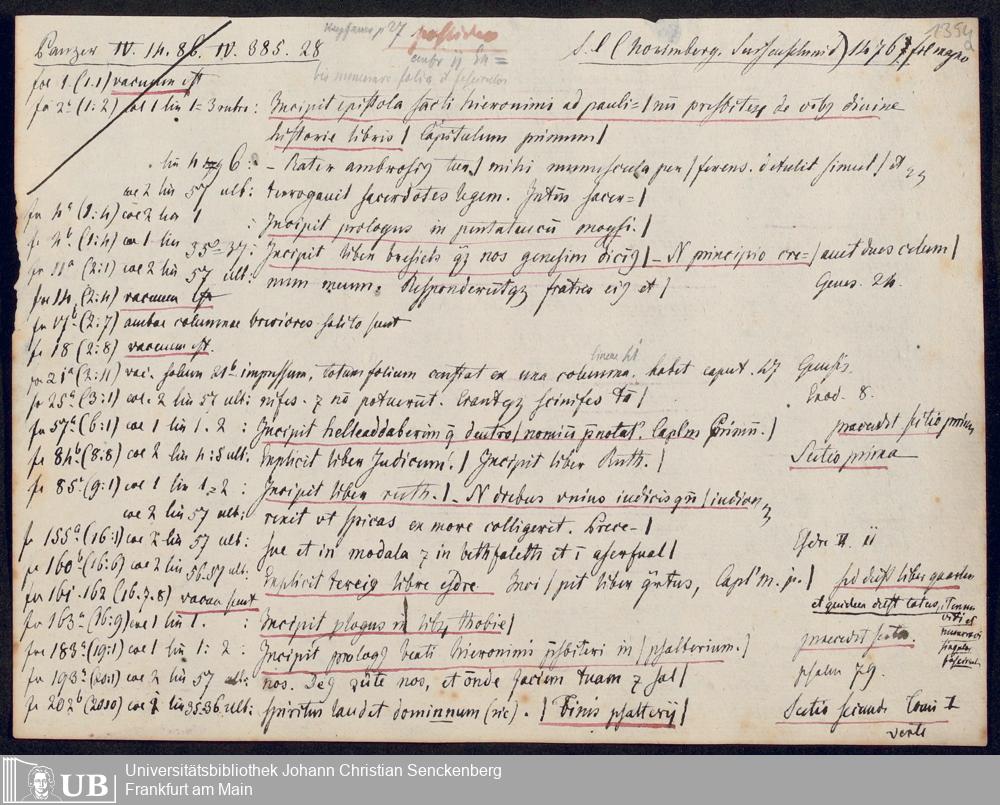 Panzer IV. 14. 86. IV. 385. 28
S. l. (Norimberg. Sensenschmid) 1476 fol magno
1354
fol 1 (1.1) vacuum est
fo 2a (1:2) col 1 lin 1=3 rubre: Incipit epistola sancti hieronimi ad pauli=/ nu presbiteru de oibz divine
historie libris / Capitulum primum /
lin 4 6: - Rater ambrosius tua / mihi munuscula per / ferens. detulit simul / et
col 2 lin 57 ult: terrogavit sacerdotes legem. Intus sacer= /
fo 4a (1:4) col 2 lin 1 : Incipit prologus in pentateucu moysi.
fo 4b (1:4) col 1 lin 35=37: Incipit liber bresichs qz nos genesim dicis / - N principio cre=/ auit deus celum /
fo 11a (2:1) col 2 lin 57 ult: num meum. Responderutqz fratres eis et / Genes. 24.
fo 14 (2:4) vacuum est
fo 17b (2:7) ambae columnae breviores solito sunt
fo 18 (2:8) vacuum est.
fo 21a (2:11) vac. solum 21b impressum, totum folium constat ex una columna. habet caput. 47 Genesis.
fo 25a (3:1) col. 2 lin 57 ult: nifes. z no potuerut. Erantqz scinifes ta / Exod. 8.
fo 57a (6:1) col 1 lin 1. 2 : Incipit helleaddaberim q dentro / nomiu pnotat. Caplm Primu. /
fo 84b (8:8) col 2 lin 4:5 ult: Explicit liber Judicum. / Incipit liber Ruth. / Sectio prima
fo 85a (9:1) col 1 lin 1=2 : Incipit liber ruth. / - N diebus unius iudicis qn / iudices
col 2 lin 57 ult: rexit ut spicas ex more colligeret. Prece- /
fo 155a (16:1) col 2 lin 57 ult: sue et in modala z in bethfaleth et i asersual / Esdre II. ii
fo 160b (16:6) col 2 lin 56.57 ult: Explicit tercius libre esdre Inci / pit liber qrtus, Capl'm. p. / sed deest liber quartus
fo 161. 162 (16.7.8) vacua sunt et quidem deest totus,
fo 163a (16:9) col 1 lin 1. : Incipit plogus in libz thobie /
fo 183a (19:1) col 1 lin 1: 2 : Incipit prologz beati hieronimi psbiteri in / psalterium. /
fo 193a (20:1) col 2 lin 57 ult: nos. De9 virtutu nos, et onde faciem tuam z sal / psalm 79.
fo 202b (20:10) col 1 lin 35.36 ult: spiritus laudet dominnum (sic). / Finis psalterii / Sectio secunda Tomi I
verte
UB Universitätsbibliothek Johann Christian Senckenberg
Frankfurt am Main